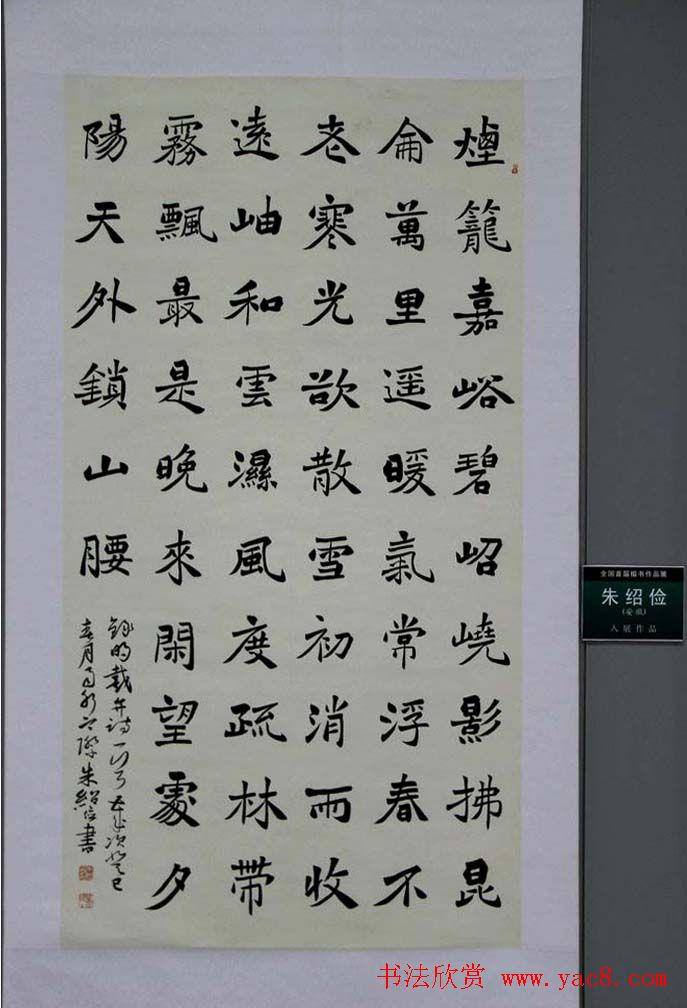 煙籠嘉峪碧岹嶢影拂昆
侖萬里遥暖氣常浮春不
老寒光欲散雪初消而收
遠岫和雲濕風度疏林帶
霧飄最是晚來閑望處夕
陽天外鎖山腰
錄明戴弁詩一首歲次癸巳
春月朱紹儉書
全国首届楷书作品展
朱绍俭
(安徽)
入展作品
书法欣赏 www.yac8.com